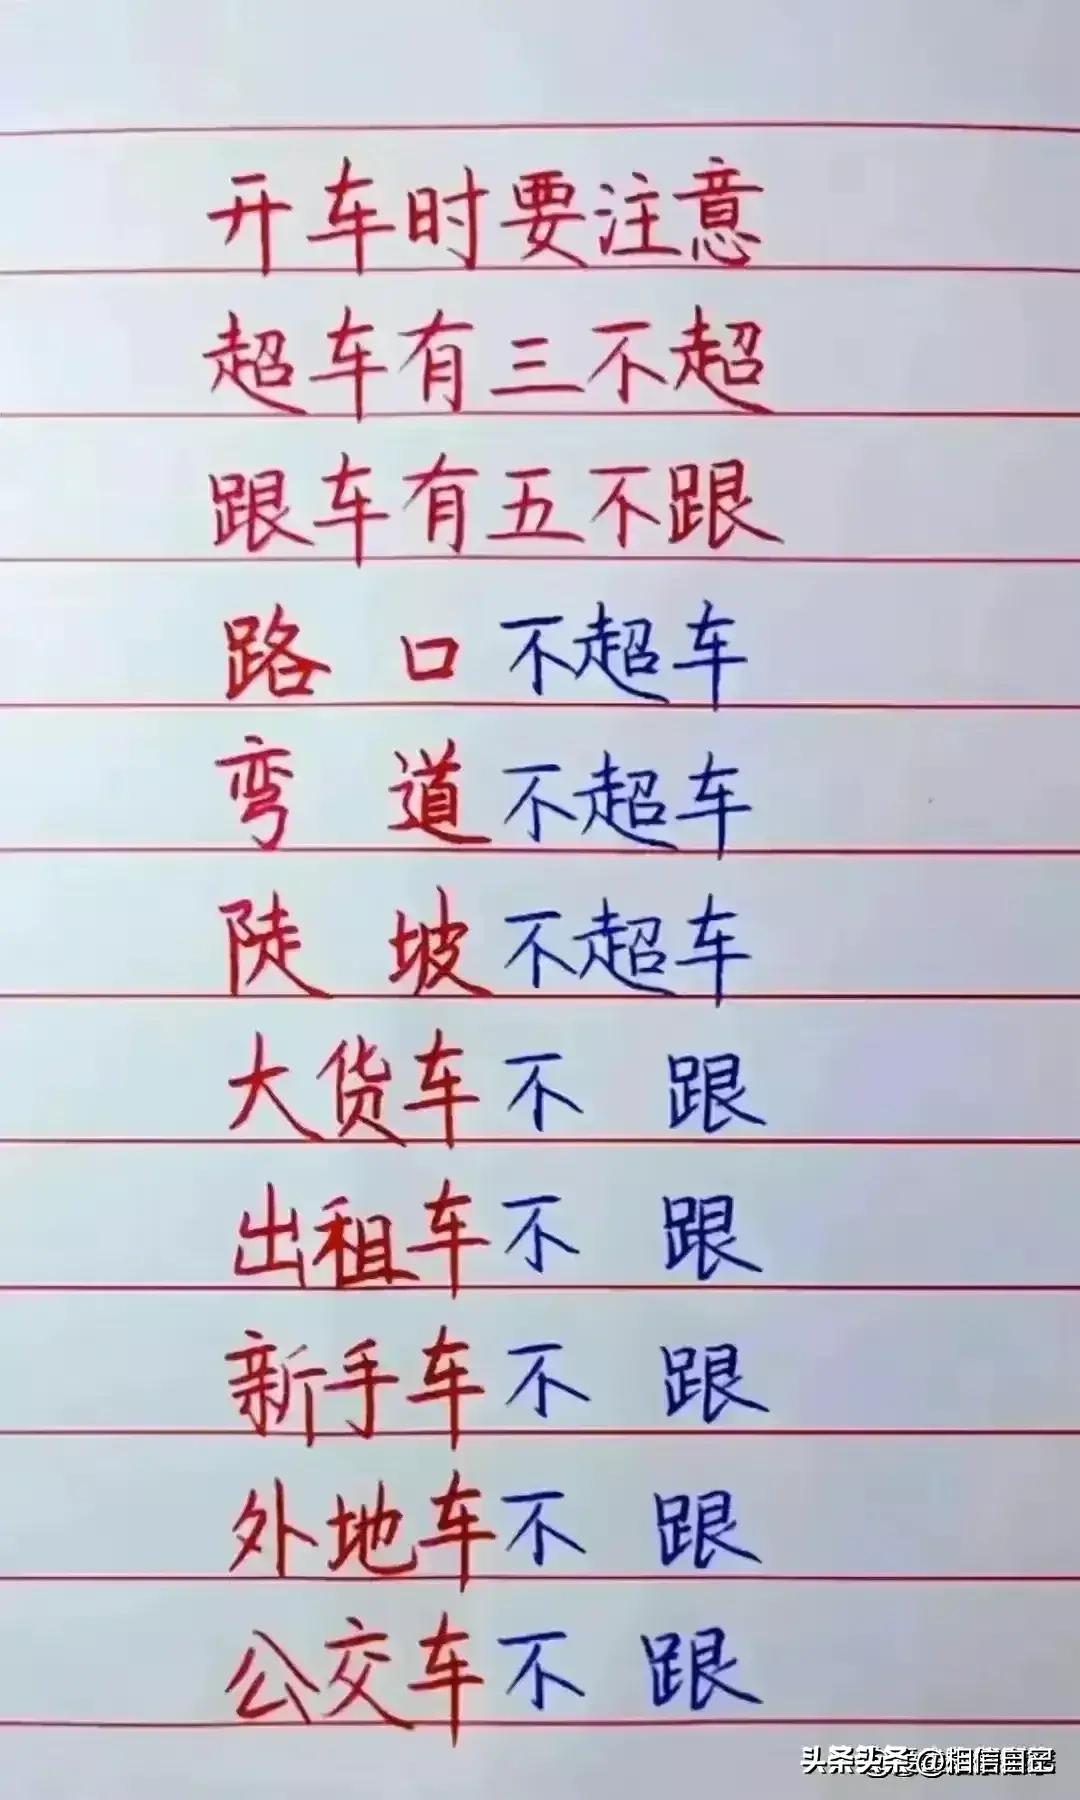 开车时要注意
超车有三不超
跟车有五不跟
路口不超车
弯道不超车
陡坡不超车
大货车不跟
出租车不跟
新手车不跟
外地车不跟
公交车不跟
头条 @相信自己